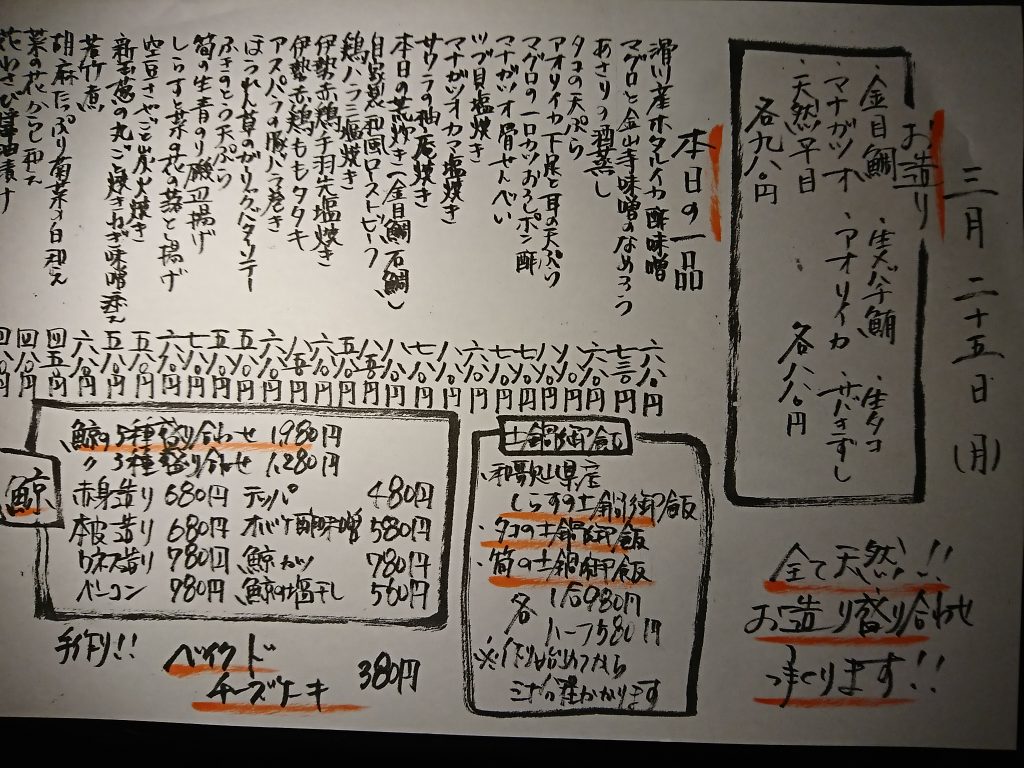 三月二十五日(月)
お造り
・金目鯛 ・生メバチ鮪 ・生タコ
・マナガツオ ・アオリイカ ・サバきずし
・天然平目 各八八〇円
各九八〇円
全て天然!!
お造り盛り合わせ
つくります!!
本日の一品
滑川産ホタルイカ酢味噌 六八〇円
マグロと金山寺味噌のなめろう 七三〇円
あさりの酒蒸し 六八〇円
タコの天ぷら
アオリイカ下足と耳の天ぷら
マグロの一口カツおろしポン酢
マナガツオ骨せんべい
ツブ貝塩焼き
マナガツオカマ塩焼き
サワラの柚庵焼き
本日の荒炊き(金目鯛、石鯛)
自家製和風ローストビーフ
鶏ハラミ塩焼き
伊勢赤鶏手羽元塩焼き
伊勢赤鶏ももタタキ
アスパラの豚バラ巻き
ほうれん草のガーリックバターソテー
ふきのとう天ぷら
筍の生青のり磯辺揚げ
しらすと菜の花落とし揚げ
空豆さやごと炭火焼き
新玉葱の丸ごと焼きねぎ味噌添え
若竹煮
胡麻たっぷり菊菜の白和え 四五〇円
菜の花からし和え 四八〇円
花わさび醤油漬け 四八〇円
土鍋御飯
・和歌山県産
しらすの土鍋御飯
・タコの土鍋御飯
・筍の土鍋御飯
各 1合980円
ハーフ580円
※作り始めてから
三十分程かかります
鯨
鯨の5種盛り合わせ 1,980円
〃 3種盛り合わせ 1,280円
赤身造り 680円 テッパ 480円
本皮造り 680円 オバケ酢味噌 580円
ウネス造り 780円 鯨カツ 780円
ベーコン 980円 鯨の塩干し 560円
手作り!!
ベイクド
チーズケーキ 380円